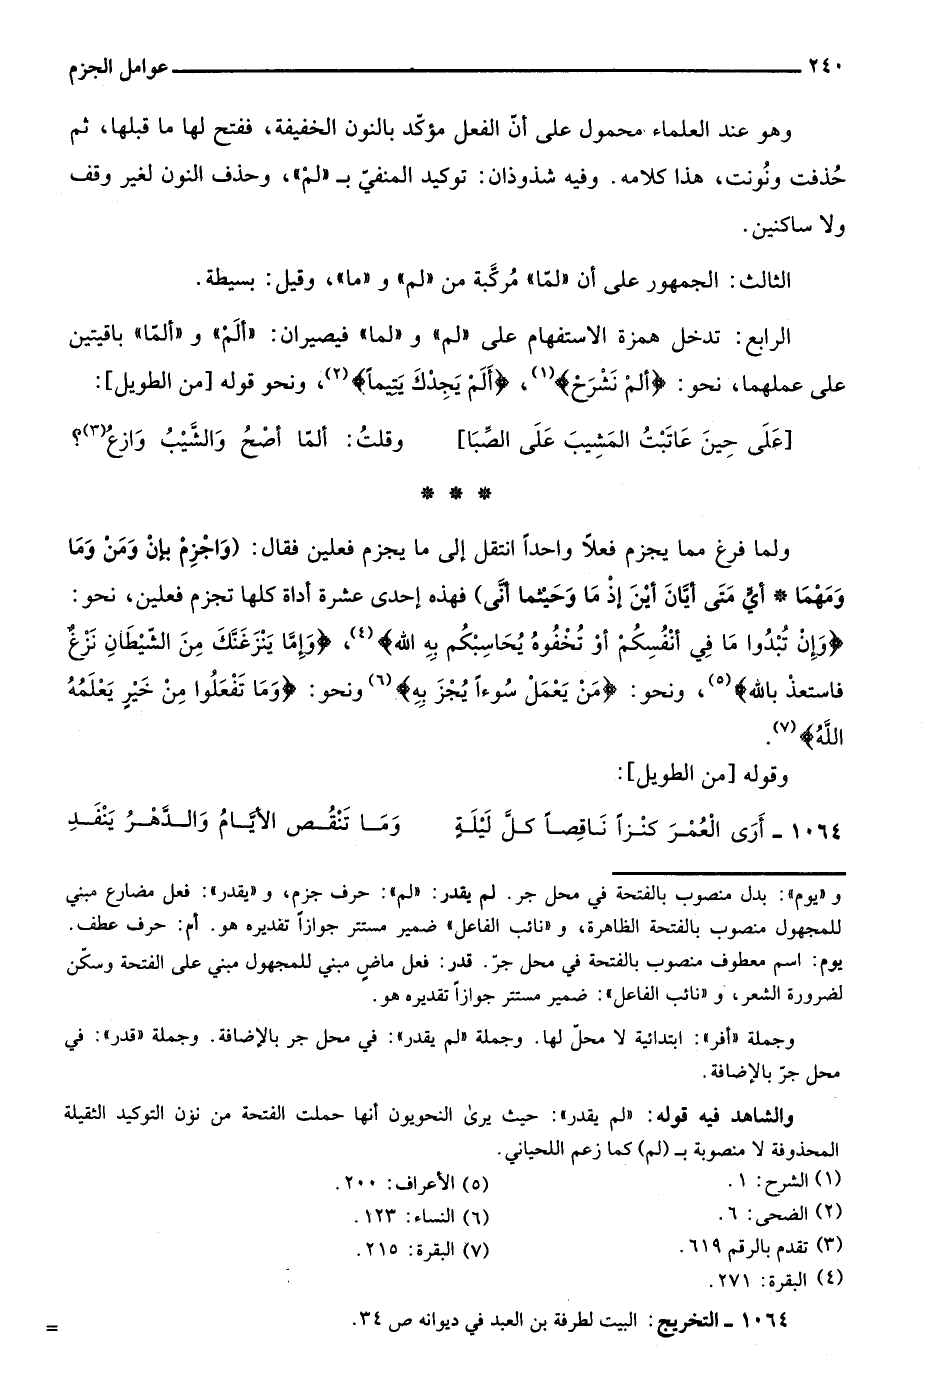 ٢٤٠ عوامل الجزم
وهو عند العلماء محمول على أنّ الفعل مؤكّد بالنون الخفيفة، ففتح لها ما قبلها، ثم
حُذفت ونُونت، هذا كلامه. وفيه شذوذان: توكيد المنفيّ بـ «لمْ»، وحذف النون لغير وقف
ولا ساكنين.
الثالث: الجمهور على أن «لمّا» مُركَّبة من «لم» و «ما»، وقيل: بسيطة.
الرابع: تدخل همزة الاستفهام على «لم» و «لما» فيصيران: «ألَمْ» و «ألمّا» باقيتين
على عملهما، نحو: ﴿ألمْ نَشْرَحْ﴾(١)، ﴿أَلَمْ يَجِدْكَ يَتِيماً﴾(٢)، ونحو قوله [من الطويل]:
[عَلَى حِينَ عَاتَبْتُ المَشِيبَ عَلَى الصِّبَا] وقلتُ: ألمّا أصْحُ وَالشَّيْبُ وَازعُ(٣)؟
* * *
ولما فرغ مما يجزم فعلاً واحداً انتقل إلى ما يجزم فعلين فقال: (وَاجْزِمْ بإنْ وَمَنْ وَمَا
وَمَهْمَا * أيٍّ مَتَى أيَّانَ أيْنَ إذْ مَا وَحَيْثما أنَّى) فهذه إحدى عشرة أداة كلها تجزم فعلين، نحو:
﴿وَإنْ تُبْدُوا مَا فِي أنْفُسِكُمْ أوْ تُخْفُوهُ يُحَاسِبْكُم بِهِ الله﴾(٤)، ﴿وَإمَّا يَنْزَغَنَّكَ مِنَ الشّيْطَانِ نَزْغٌ
فاستعذْ بالله﴾(٥)، ونحو: ﴿مَنْ يَعْمَلْ سُوءاً يُجْزَ بِهِ﴾(٦) ونحو: ﴿وَمَا تَفْعَلُوا مِنْ خَيْرٍ يَعْلَمْهُ
اللَّهُ﴾(٧).
وقوله [من الطويل]:
١٠٦٤ ـ أَرَى الْعُمْرَ كَنْزاً نَاقِصاً كلَّ لَيْلَةٍ وَمَا تَنْقُص الأيَّامُ وَالدَّهْرُ يَنْفَدِ
و «يوم»: بدل منصوب بالفتحة في محل جر. لم يقدر: «لم»: حرف جزم، و «يقدر»: فعل مضارع مبني
للمجهول منصوب بالفتحة الظاهرة، و «نائب الفاعل» ضمير مستتر جوازاً تقديره هو. أم: حرف عطف.
يوم: اسم معطوف منصوب بالفتحة في محل جرّ. قدر: فعل ماضٍ مبني للمجهول مبني على الفتحة وسكّن
لضرورة الشعر، و «نائب الفاعل»: ضمير مستتر جوازاً تقديره هو.
وجملة «أفر»: ابتدائية لا محلّ لها. وجملة «لم يقدر»: في محل جر بالإضافة. وجملة «قدر»: في
محل جرّ بالإضافة.
والشاهد فيه قوله: «لم يقدر»: حيث يرىٰ النحويون أنها حملت الفتحة من نون التوكيد الثقيلة
المحذوفة لا منصوبة بـ (لم) كما زعم اللحياني.
(١) الشرح: ١.
(٢) الضحى: ٦.
(٣) تقدم بالرقم ٦١٩.
(٤) البقرة: ٢٧١.
(٥) الأعراف: ٢٠٠.
(٦) النساء: ١٢٣.
(٧) البقرة: ٢١٥.
١٠٦٤ ـ التخريج: البيت لطرفة بن العبد في ديوانه ص ٣٤.
=